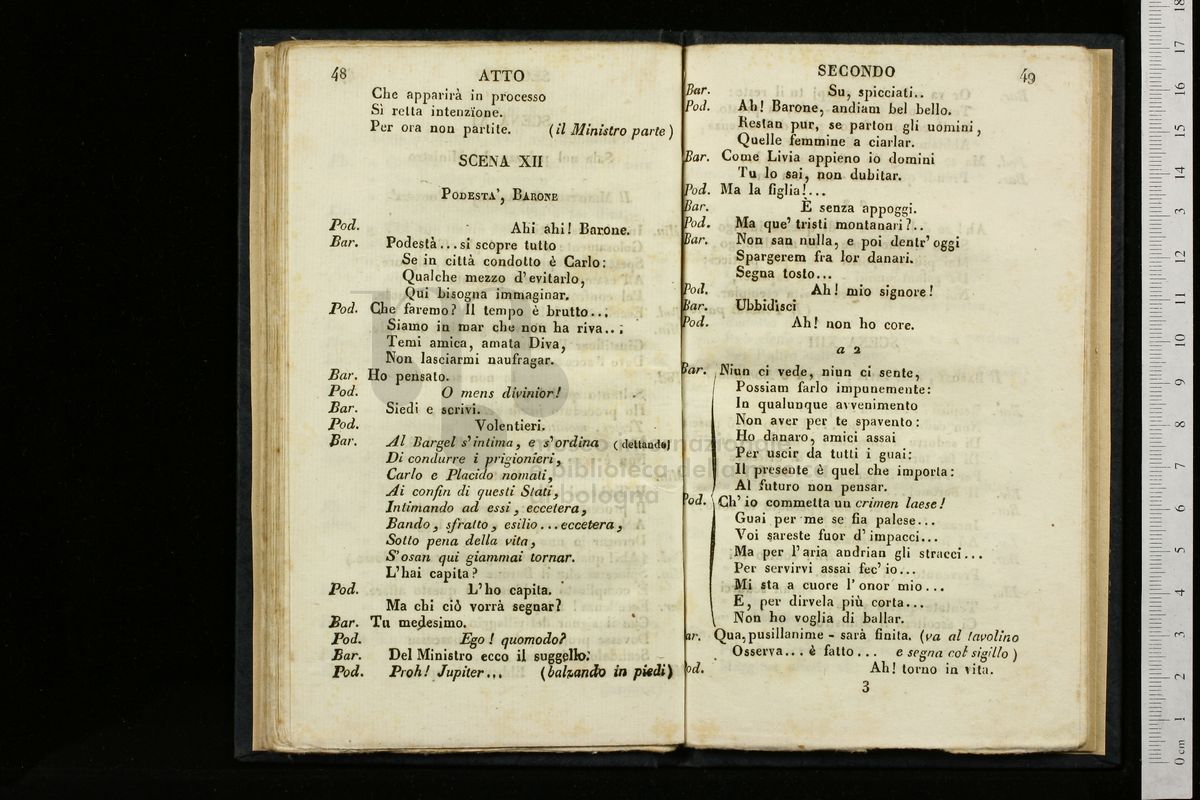 48 ATTO
Che apparirà in processo
Sì retta intenzione.
Per ora non partite. (il Ministro parte)
SCENA XII
PODESTA', BARONE
Pod. Ahi ahi! Barone.
Bar. Podestà...si scopre tutto
Se in città condotto è Carlo:
Qualche mezzo d'evitarlo,
Qui bisogna immaginar.
Pod. Che faremo? Il tempo è brutto...
Siamo in mar che non ha riva...
Temi amica, amata Diva,
Non lasciarmi naufragar.
Bar. Ho pensato.
Pod. O mens divinior!
Bar. Siedi e scrivi.
Pod. Volentieri.
Bar. Al Bargel s'intima, e s'ordina (dettando)
Di condurre i prigionieri,
Carlo e Placido nomati,
Ai confin di questi Stati,
Intimando ad essi, eccetera,
Bando, sfratto, esilio...eccetera,
Sotto pena della vita,
S'osan qui giammai tornar.
L'hai capita?
Pod. L'ho capita.
Ma chi ciò vorrà segnar?
Bar. Tu medesimo.
Pod. Ego! quomodo?
Bar. Del Ministro ecco il suggello.
Pod. Proh! Jupiter... (balzando in piedi)
SECONDO 49
Bar. Su, spicciati..
Pod. Ah! Barone, andiam bel bello.
Restan pur, se parton gli uomini,
Quelle femmine a ciarlar.
Bar. Come Livia appieno io domini
Tu lo sai, non dubitar.
Pod. Ma la figlia!...
Bar. È senza appoggi.
Pod. Ma que' tristi montanari?..
Bar. Non san nulla, e poi dentr'oggi
Spargerem fra lor danari.
Segna tosto...
Pod. Ah! mio signore!
Bar. Ubbidisci
Pod. Ah! non ho core.
a 2
Bar. Niun ci vede, niun ci sente,
Possiam farlo impunemente:
In qualunque avvenimento
Non aver per te spavento:
Ho danaro, amici assai
Per uscir da tutti i guai:
Il presente è quel che importa:
Al futuro non pensar.
Pod. Ch'io commetta un crimen laese!
Guai per me se fia palese...
Voi sareste fuor d'impacci...
Ma per l'aria andrian gli stracci...
Per servirvi assai fec'io...
Mi sta a cuore l'onor mio...
E, per dirvela più corta...
Non ho voglia di ballar.
ar. Qua, pusillanime - sarà finita. (va al tavolino
Osserva... è fatto... e segna col sigillo)
od. Ah! torno in vita.
3